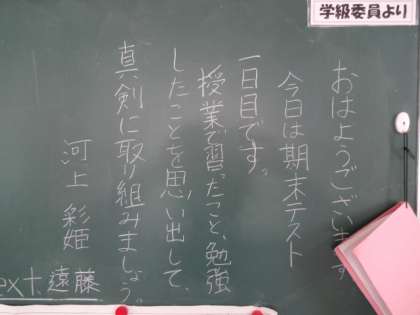 学級委員より
おはようございます
今日は期末テスト
一日目です。
授業で習ったこと、勉強
したことを思い出して、
真剣に取り組みましょう。
河上 彩姫
ext. 遠藤